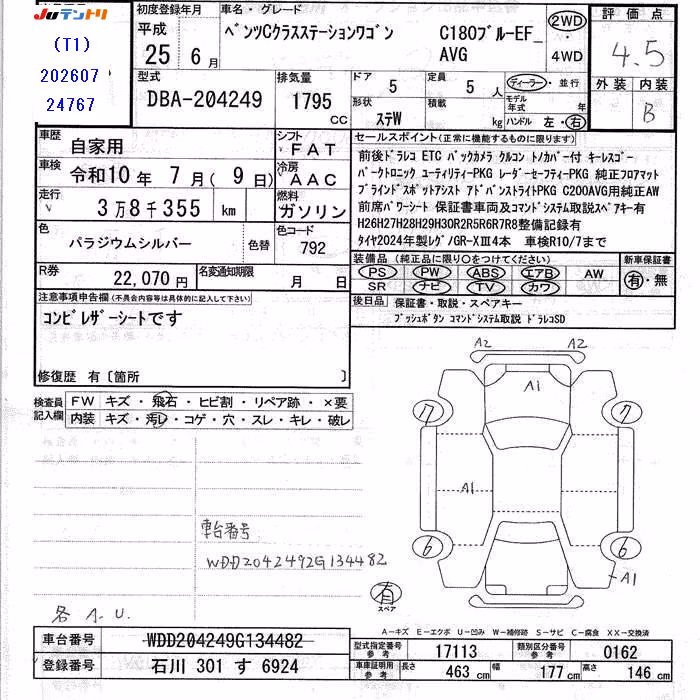 JUテントリ
(T1)
202607
24767
初度登録年月
平成
25 6月
車名・グレード
ベンツCクラスステーションワゴン C180ブルーEF_
AVG
2WD
・
4WD
評価点
4.5
外装 内装
B
型式
DBA-204249
排気量
1795
CC
ドア
5
定員
5 人
ディーラー・並行
形状
ステW
積載
kg
モデル年式 年
ハンドル 左・右
車歴
自家用
シフト
FAT
車検
令和10年 7月( 9日)
冷房
AAC
走行
3万8千355 km
燃料
ガソリン
色
パラジウムシルバー
色替
色コード
792
R券
22,070円
名変通知期限
月 日
セールスポイント(正常に機能するものに限ります)
前後ドラレコ ETC バックカメラ クルコン トノカバー付 キーレスゴー
パークトロニック ユーティリティーPKG レーダーセーフティーPKG 純正フロアマット
ブラインドスポットアシスト アドバンストライトPKG C200AVG用純正AW
前席パワーシート 保証書車両及コマンドシステム取説スペアキー有
H26H27H28H29H30R2R5R6R7R8整備記録有
タイヤ2024年製レグノGR-XⅢ4本 車検R10/7まで
装備品(純正品に限り○をつけてください)
PS PW ABS エアB AW
SR ナビ TV カワ
新車保証書
有・無
後日品
保証書・取説・スペアキー
プッシュボタン コマンドシステム取説 ドラレコSD
注意事項申告欄(不具合内容等は具体的に記入して下さい)
コンビレザーシートです
修復歴 有〔箇所 〕
検査員記入欄
FW キズ・飛石・ヒビ割・リペア跡・×要
内装 キズ・汚レ・コゲ・穴・スレ・キレ・破レ
車台番号
WDD2042492G134482
各 A.U.
A2 A2
A1
7 7
A1
6 6
A1
有
スペア
A−キズ E−エクボ U−凹み W−補修跡 S−サビ C−腐食 XX−交換済
車台番号
WDD204249G134482
登録番号
石川 301 す 6924
型式指定番号参考
17113
類別区分番号参考
0162
車庫証明用参考
長さ 463 cm 幅 177 cm 高さ 146 cm